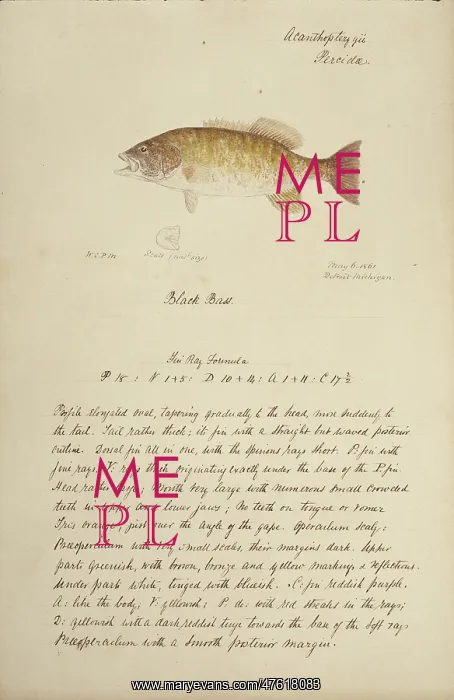 Acanthopterygii
Percidæ.
ME
PL
W.C.P.M
Scale (natl size)
May 6. 1861
Detroit Michigan.
Black Bass.
Fin Ray Formula
P 18 : V 1+5 : D 10 + 14 : A 1 + 11 : C 17 2/2
Profile elongated oval, tapering gradually to the head, more suddenly to
the tail. Tail rather thick; its fin with a straight but waved posterior
outline. Dorsal fin all in one, with the spinous rays short. P. fin with
fine rays. V. originating exactly under the base of the P. fin
Head rather large; Mouth very large with numerous small crowded
teeth in lower jaws; No teeth on tongue or vomer
Iris orange, just over the angle of the gape. Operculum scaly:
Preoperculum with very small scales, their margins dark. Upper
parts Greenish, with brown, bronze and yellow markings & reflections.
Under parts white, tinged with blueish. C: fin reddish purple.
A: like the body; V: yellowish; P. do: with red streaks in the rays;
D: yellowish with a dark reddish tinge towards the base of the soft rays
Preoperculum with a smooth posterior margin.
ME
PL
www.maryevans.com/47618083